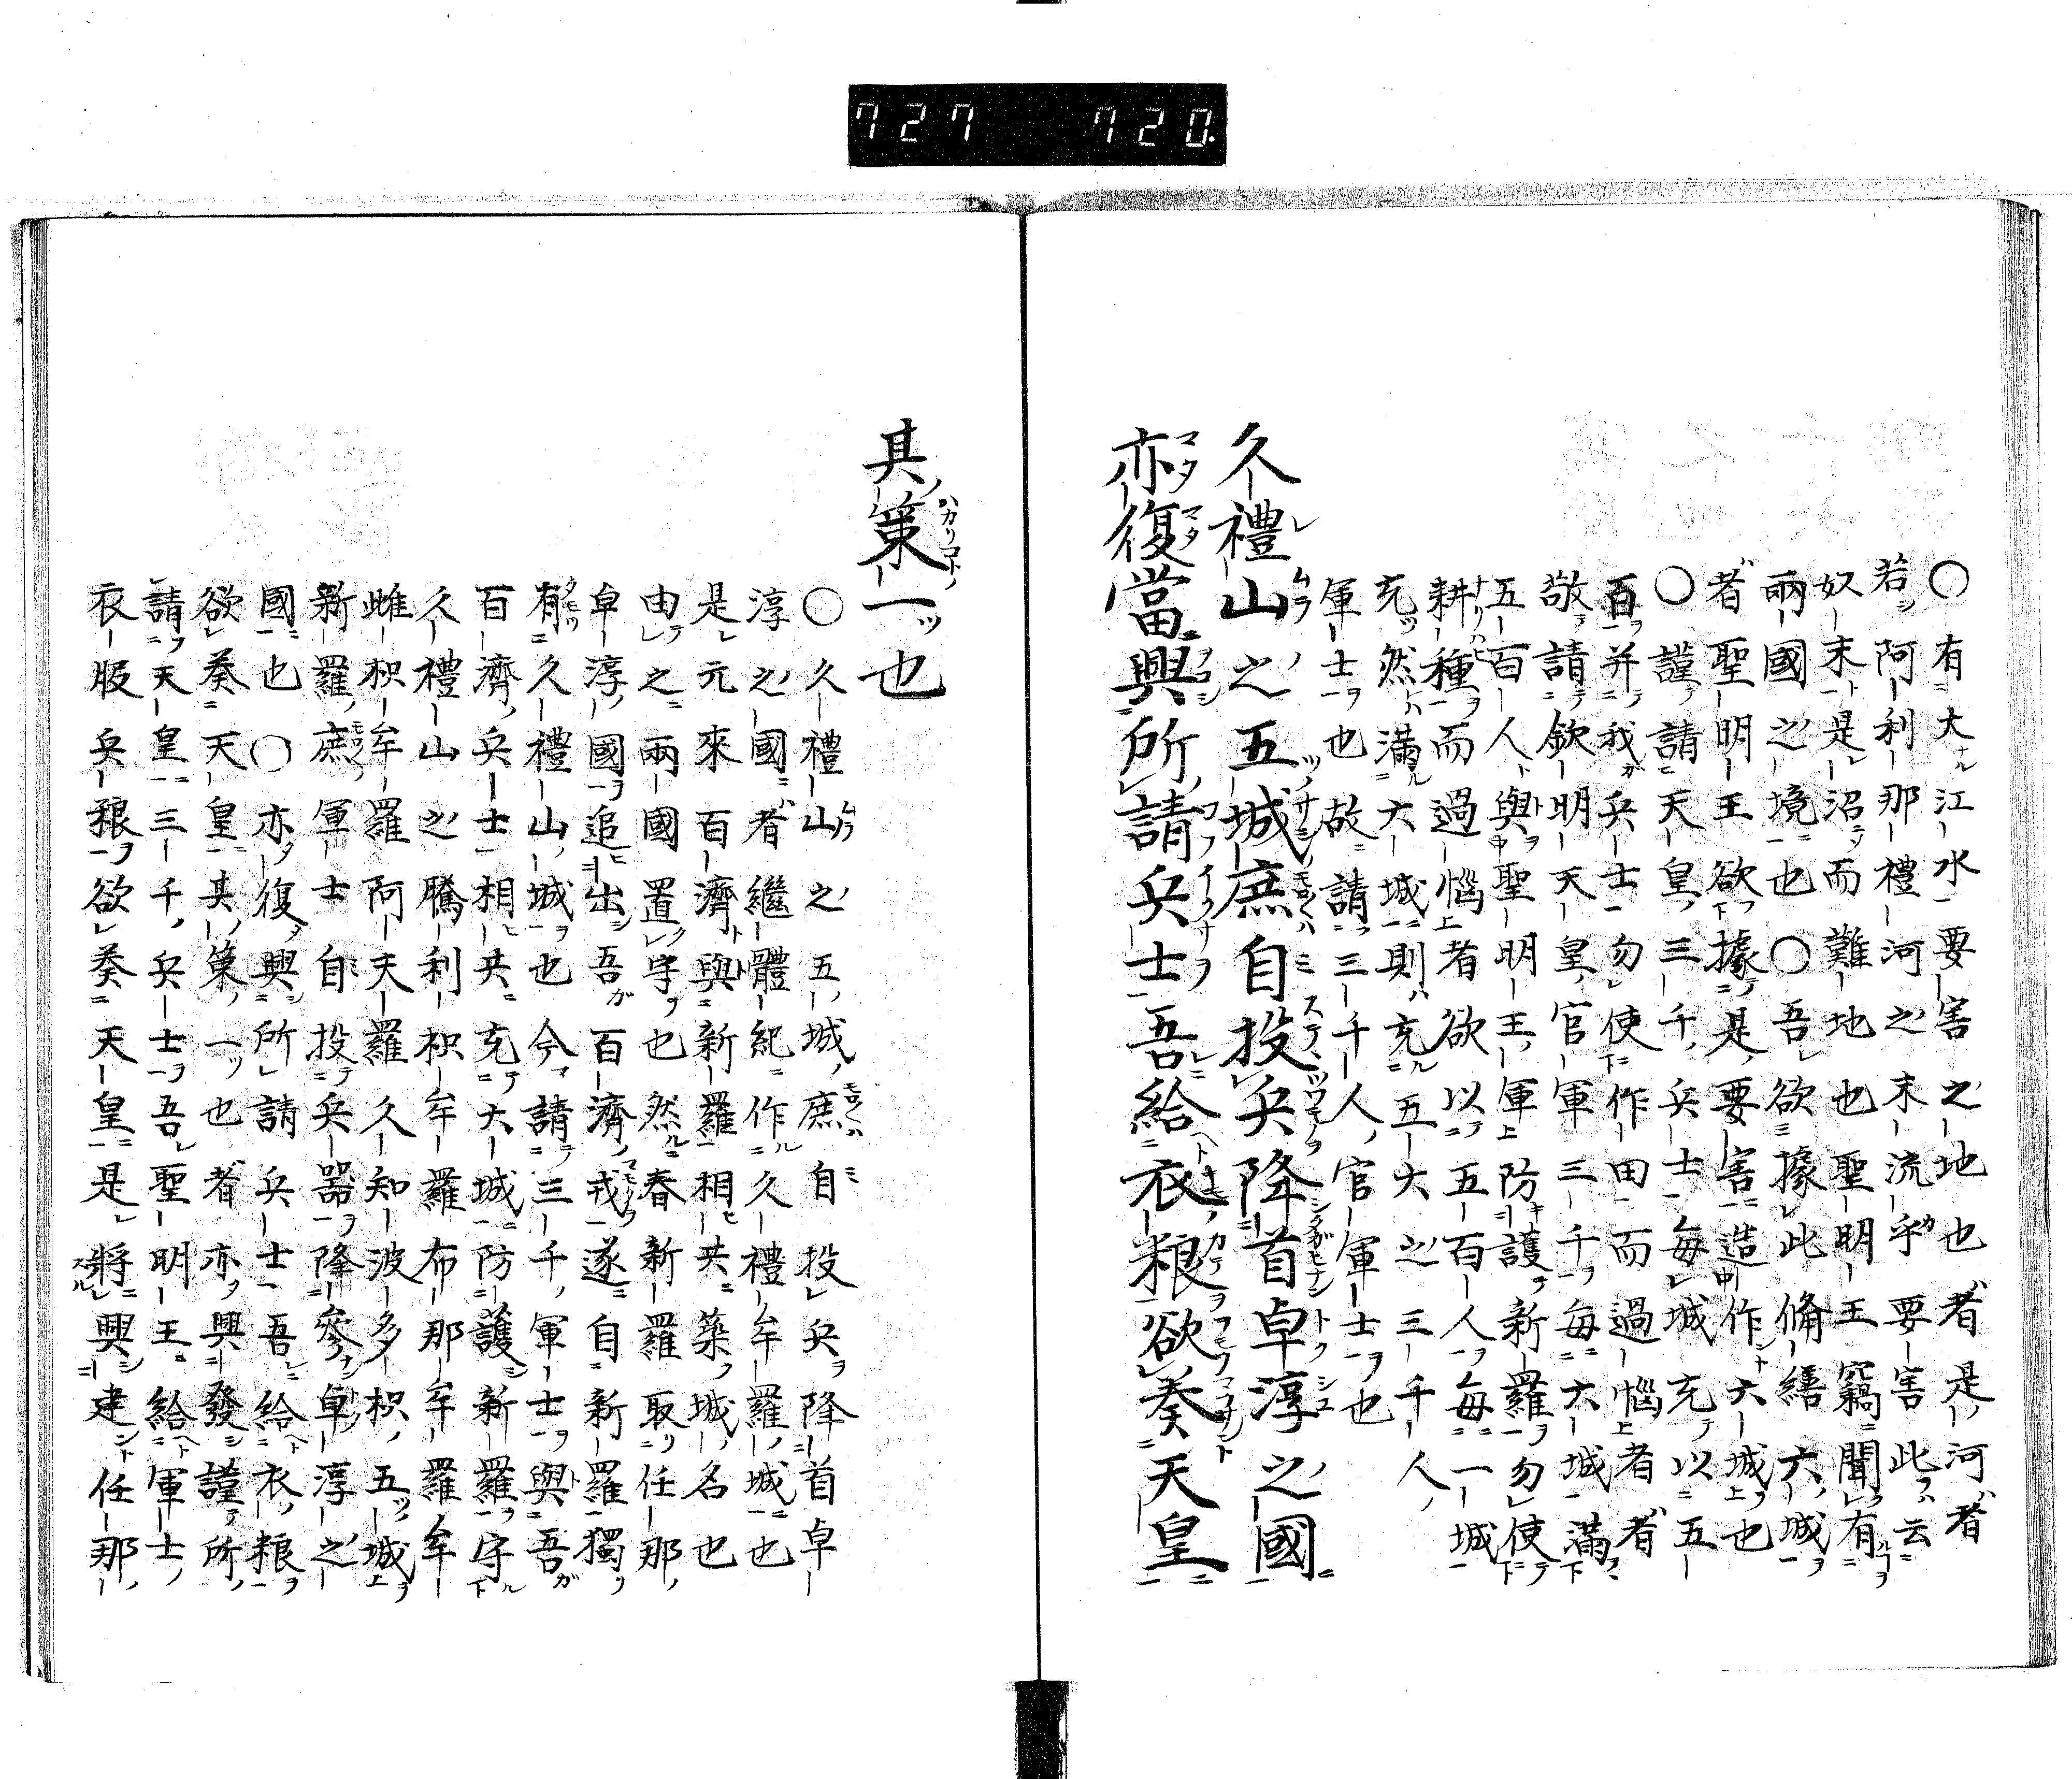 727 720.
〇有大江水要害之地也者是河者
若阿利那禮河之末流乎要害此云
奴末是沼而難地也聖明王竊聞有
兩國之境也〇吾欲據此脩繕六城
者聖明王欲據是要害造作六城也
〇謹請天皇三千兵士每城充以五
百并我兵士勿使作田而過惱者者
敬請欽明天皇官軍三千每大城滿
五百人與聖明王軍防護新羅勿使
耕種而過惱者欲以五百人每一城
充然滿大城則充五大之三千人
軍士也故請三千人官軍士也
久禮山之五城庶自投兵降首卓淳之國
亦復當興所請兵士吾給衣粮欲奏天皇
其策一也
〇久禮山之五城庶自投兵降首卓
淳之國者繼體紀作久禮牟羅城也
是元來百濟與新羅相共築城名也
由之兩國置守也然春新羅取任那
卓淳國追出吾百濟戎遂自新羅獨
有久禮山城也今請三千軍士與吾
百濟兵士相共充大城防護新羅守
久禮山之騰利枳牟羅布那牟羅牟
雌枳牟羅阿夫羅久知波多枳五城
新羅庶軍士自投兵器降參卓淳之
國也〇亦復興所請兵士吾給衣粮
欲奏天皇其策一也者亦興發謹所
請天皇三千兵士吾聖明王給軍士
衣服兵粮欲奏天皇是將興建任那